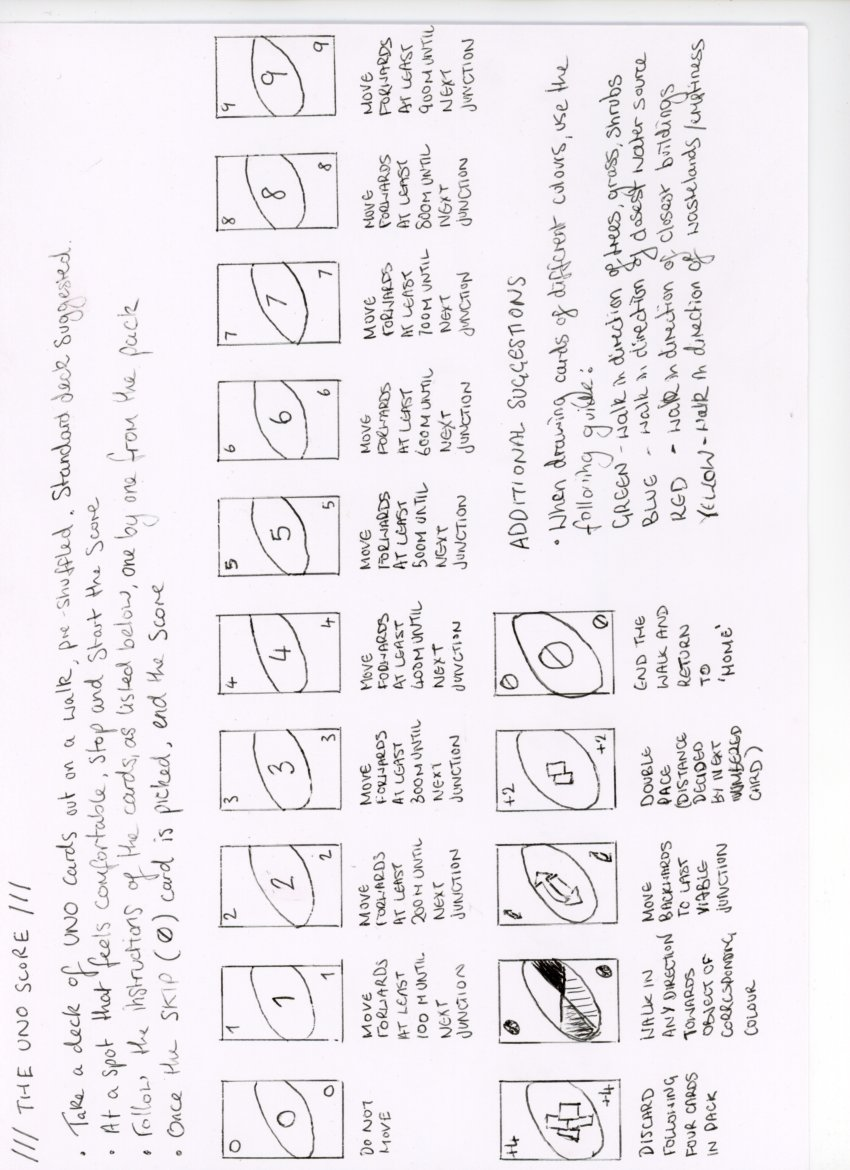 /// THE UNO SCORE ///
• Take a deck of UNO cards out on a walk, pre-shuffled. Standard deck suggested.
• At a spot that feels comfortable, stop and start the score
• Follow the instructions of the cards, as listed below, one by one from the pack
• Once the SKIP (Ø) card is picked, end the score
0
0
0
DO NOT
MOVE
1
1
1
MOVE
FORWARDS
AT LEAST
100M UNTIL
NEXT
JUNCTION
2
2
2
MOVE
FORWARDS
AT LEAST
200M UNTIL
NEXT
JUNCTION
3
3
3
MOVE
FORWARDS
AT LEAST
300M UNTIL
NEXT
JUNCTION
4
4
4
MOVE
FORWARDS
AT LEAST
400M UNTIL
NEXT
JUNCTION
5
5
5
MOVE
FORWARDS
AT LEAST
500M UNTIL
NEXT
JUNCTION
6
6
6
MOVE
FORWARDS
AT LEAST
600M UNTIL
NEXT
JUNCTION
7
7
7
MOVE
FORWARDS
AT LEAST
700M UNTIL
NEXT
JUNCTION
8
8
8
MOVE
FORWARDS
AT LEAST
800M UNTIL
NEXT
JUNCTION
9
9
9
MOVE
FORWARDS
AT LEAST
900M UNTIL
NEXT
JUNCTION
+4
+4
DISCARD
FOLLOWING
FOUR CARDS
IN PACK
WALK IN
ANY DIRECTION
TOWARDS
OBJECT OF
CORRESPONDING
COLOUR
MOVE
BACKWARDS
TO LAST
VIABLE
JUNCTION
+2
+2
DOUBLE
PACE
(DISTANCE
DECIDED
BY NEXT
NUMBERED
CARD)
Ø
Ø
Ø
END THE
WALK AND
RETURN
TO
'HOME'
ADDITIONAL SUGGESTIONS
• When drawing cards of different colours, use the
following guide:
GREEN - Walk in direction of trees, grass, shrubs
BLUE - walk in direction of closest water source
RED - walk in direction of closest buildings
YELLOW - walk in direction of wastelands/emptiness